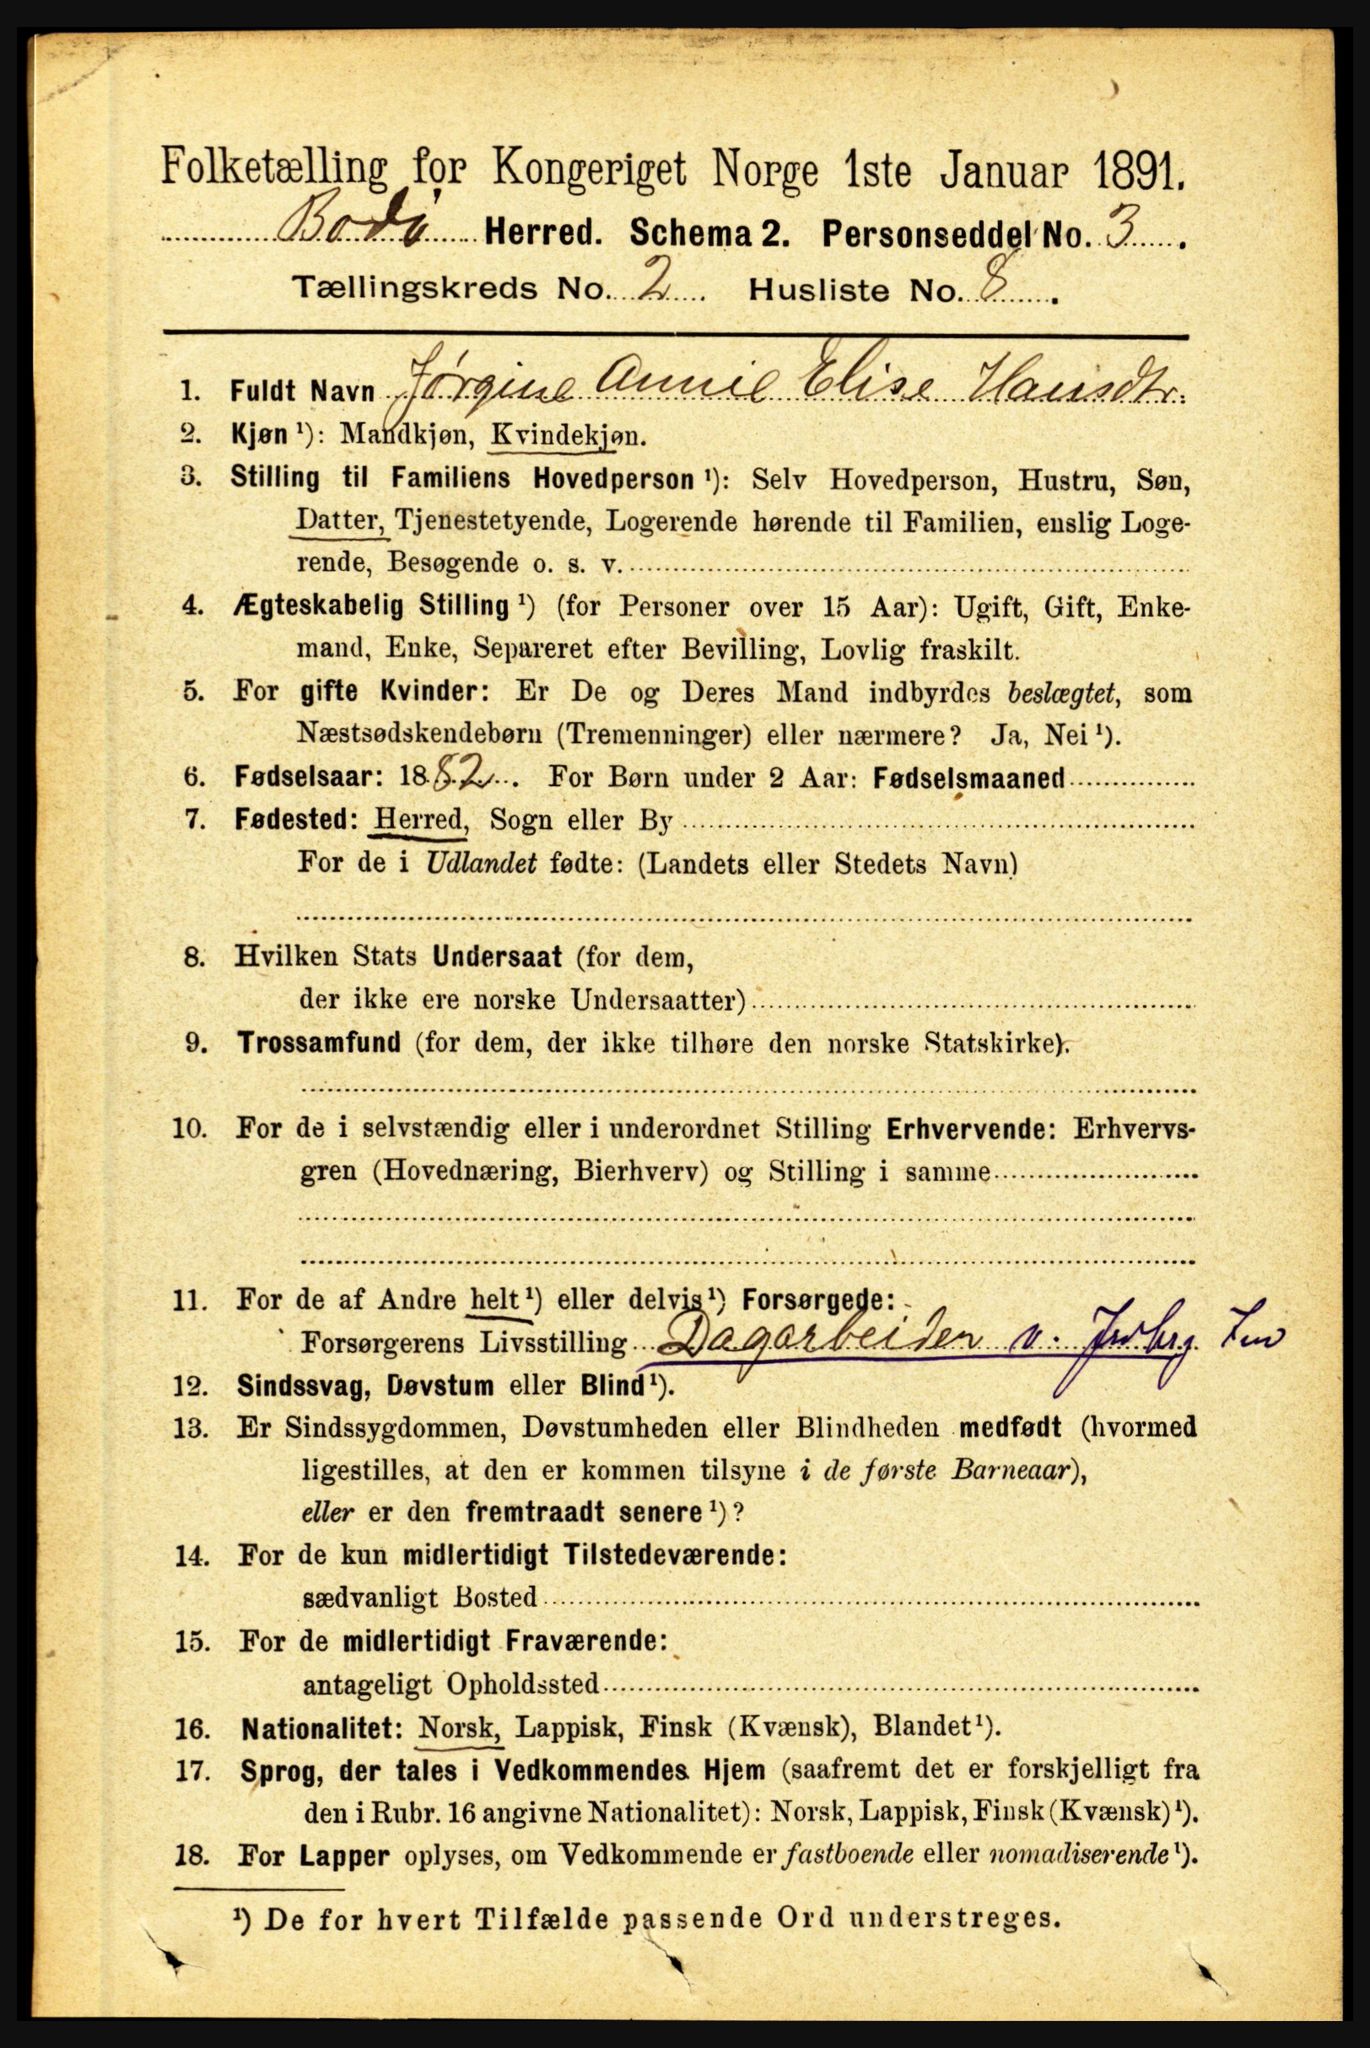 Folketælling for Kongeriget Norge 1ste Januar 1891.
Bodø Herred. Schema 2. Personseddel No. 3.
Tællingskreds No. 2. Husliste No. 8.
1. Fuldt Navn Jørgine Annie Elise Hansdtr.
2. Kjøn ¹): Mandkjøn, Kvindekjøn.
3. Stilling til Familiens Hovedperson ¹): Selv Hovedperson, Hustru, Søn,
Datter, Tjenestetyende, Logerende hørende til Familien, enslig Loge-
rende, Besøgende o. s. v.
4. Ægteskabelig Stilling ¹) (for Personer over 15 Aar): Ugift, Gift, Enke-
mand, Enke, Separeret efter Bevilling, Lovlig fraskilt.
5. For gifte Kvinder: Er De og Deres Mand indbyrdes beslægtet, som
Næstsødskendebørn (Tremenninger) eller nærmere? Ja, Nei ¹).
6. Fødselsaar: 1882. For Børn under 2 Aar: Fødselsmaaned
7. Fødested: Herred, Sogn eller By
For de i Udlandet fødte: (Landets eller Stedets Navn)
8. Hvilken Stats Undersaat (for dem,
der ikke ere norske Undersaatter)
9. Trossamfund (for dem, der ikke tilhøre den norske Statskirke).
10. For de i selvstændig eller i underordnet Stilling Erhvervende: Erhvervs-
gren (Hovednæring, Bierhverv) og Stilling i samme
11. For de af Andre helt ¹) eller delvis ¹) Forsørgede:
Forsørgerens Livsstilling Dagarbeider v. Jrdbrg
12. Sindssvag, Døvstum eller Blind ¹).
13. Er Sindssygdommen, Døvstumheden eller Blindheden medfødt (hvormed
ligestilles, at den er kommen tilsyne i de første Barneaar),
eller er den fremtraadt senere ¹)?
14. For de kun midlertidigt Tilstedeværende:
sædvanligt Bosted
15. For de midlertidigt Fraværende:
antageligt Opholdssted
16. Nationalitet: Norsk, Lappisk, Finsk (Kvænsk), Blandet ¹).
17. Sprog, der tales i Vedkommendes Hjem (saafremt det er forskjelligt fra
den i Rubr. 16 angivne Nationalitet): Norsk, Lappisk, Finsk (Kvænsk) ¹).
18. For Lapper oplyses, om Vedkommende er fastboende eller nomadiserende ¹).
¹) De for hvert Tilfælde passende Ord understreges.